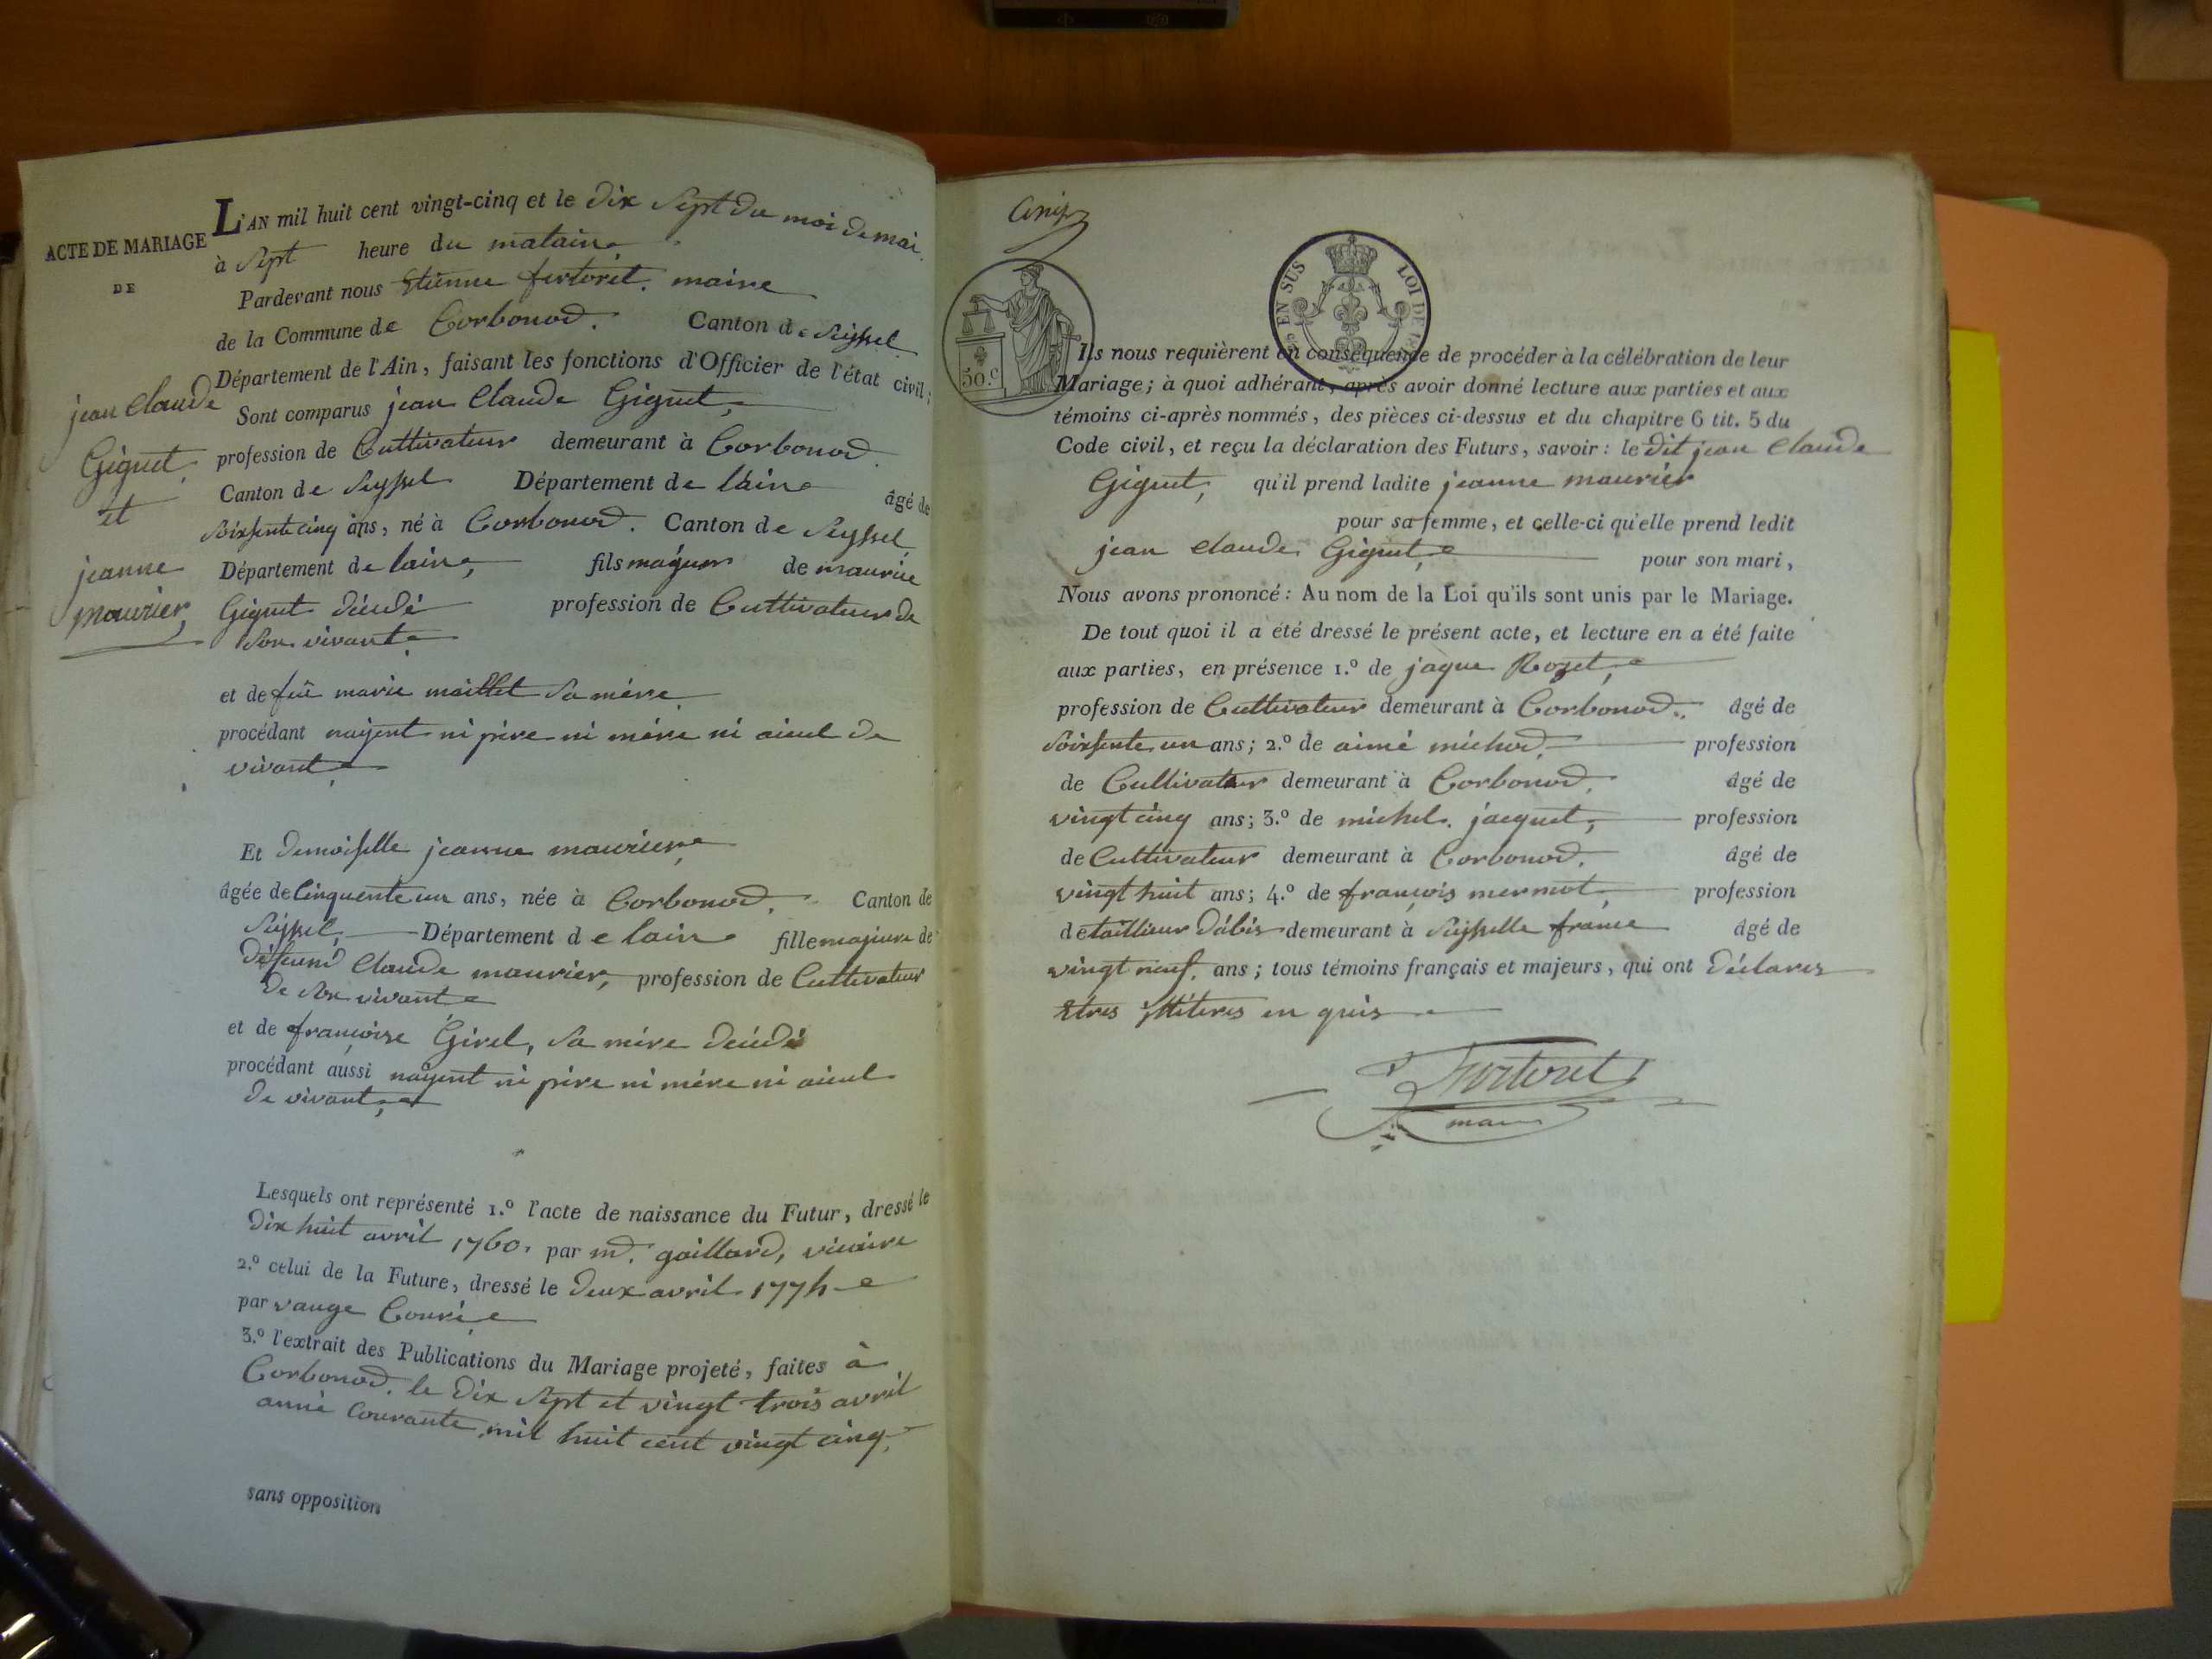 ACTE DE MARIAGE
DE
jean Claude
Giguet,
et
jeanne
maurier,
L'AN mil huit cent vingt-cinq et le dix Sept du moi de mai.
à Sept heure du matain
Pardevant nous Etienne fertoret. maire
de la Commune de Corbonod. Canton de Seyssel
Département de l'Ain, faisant les fonctions d'Officier de l'état civil;
Sont comparus jean Claude Giguet,
profession de Cultivateur demeurant à Corbonod.
Canton de Seyssel Département de lain âgé de
Soixsente cinq ans, né à Corbonod. Canton de Seyssel
Département de lain, fils majeur de maurice
Giguet décédé profession de Cultivateur de
Son vivant
et de feü marie maillet Sa mére
procédant nayent ni pére ni mére ni aieul de
vivant
Et demoiselle jeanne maurier,
âgée de Cinquente un ans, née à Corbonod. Canton de
Seyssel, Département de lain fille majeure de
Claude maurier, profession de Cultivateur
de Son vivant
et de françoise Girel, Sa mére décédé
procédant aussi nayent ni pére ni mére ni aieul
de vivant,
Lesquels ont représenté 1.º l'acte de naissance du Futur, dressé le
dix huit avril 1760. par md. gaillard, vicaire
2.º celui de la Future, dressé le deux avril 1774
par vauge Couré
3.º l'extrait des Publications du Mariage projeté, faites à
Corbonod. le dix Sept et vingt trois avril
anné Courante, mil huit cent vingt cinq,
sans opposition
EN SUS LOI DE
50.c
Ils nous requièrent en conséquence de procéder à la célébration de leur
Mariage; à quoi adhérant, après avoir donné lecture aux parties et aux
témoins ci-après nommés, des pièces ci-dessus et du chapitre 6 tit. 5 du
Code civil, et reçu la déclaration des Futurs, savoir: le dit jean Claude
Giguet, qu'il prend ladite jeanne maurier
pour sa femme, et celle-ci qu'elle prend ledit
jean Claude Giguet, pour son mari,
Nous avons prononcé: Au nom de la Loi qu'ils sont unis par le Mariage.
De tout quoi il a été dressé le présent acte, et lecture en a été faite
aux parties, en présence 1.º de jaque Rozet,
profession de Cultivateur demeurant à Corbonod. âgé de
Soixsente un ans; 2.º de aimé michod. profession
de Cultivateur demeurant à Corbonod. âgé de
vingt cinq ans; 3.º de michel. jacquet, profession
de Cultivateur demeurant à Corbonod. âgé de
vingt huit ans; 4.º de françois mermot, profession
de taillieur dábis demeurant à Seysselle france âgé de
vingt neuf. ans; tous témoins français et majeurs, qui ont déclarer
Etres illiteres en quis
Fertoret